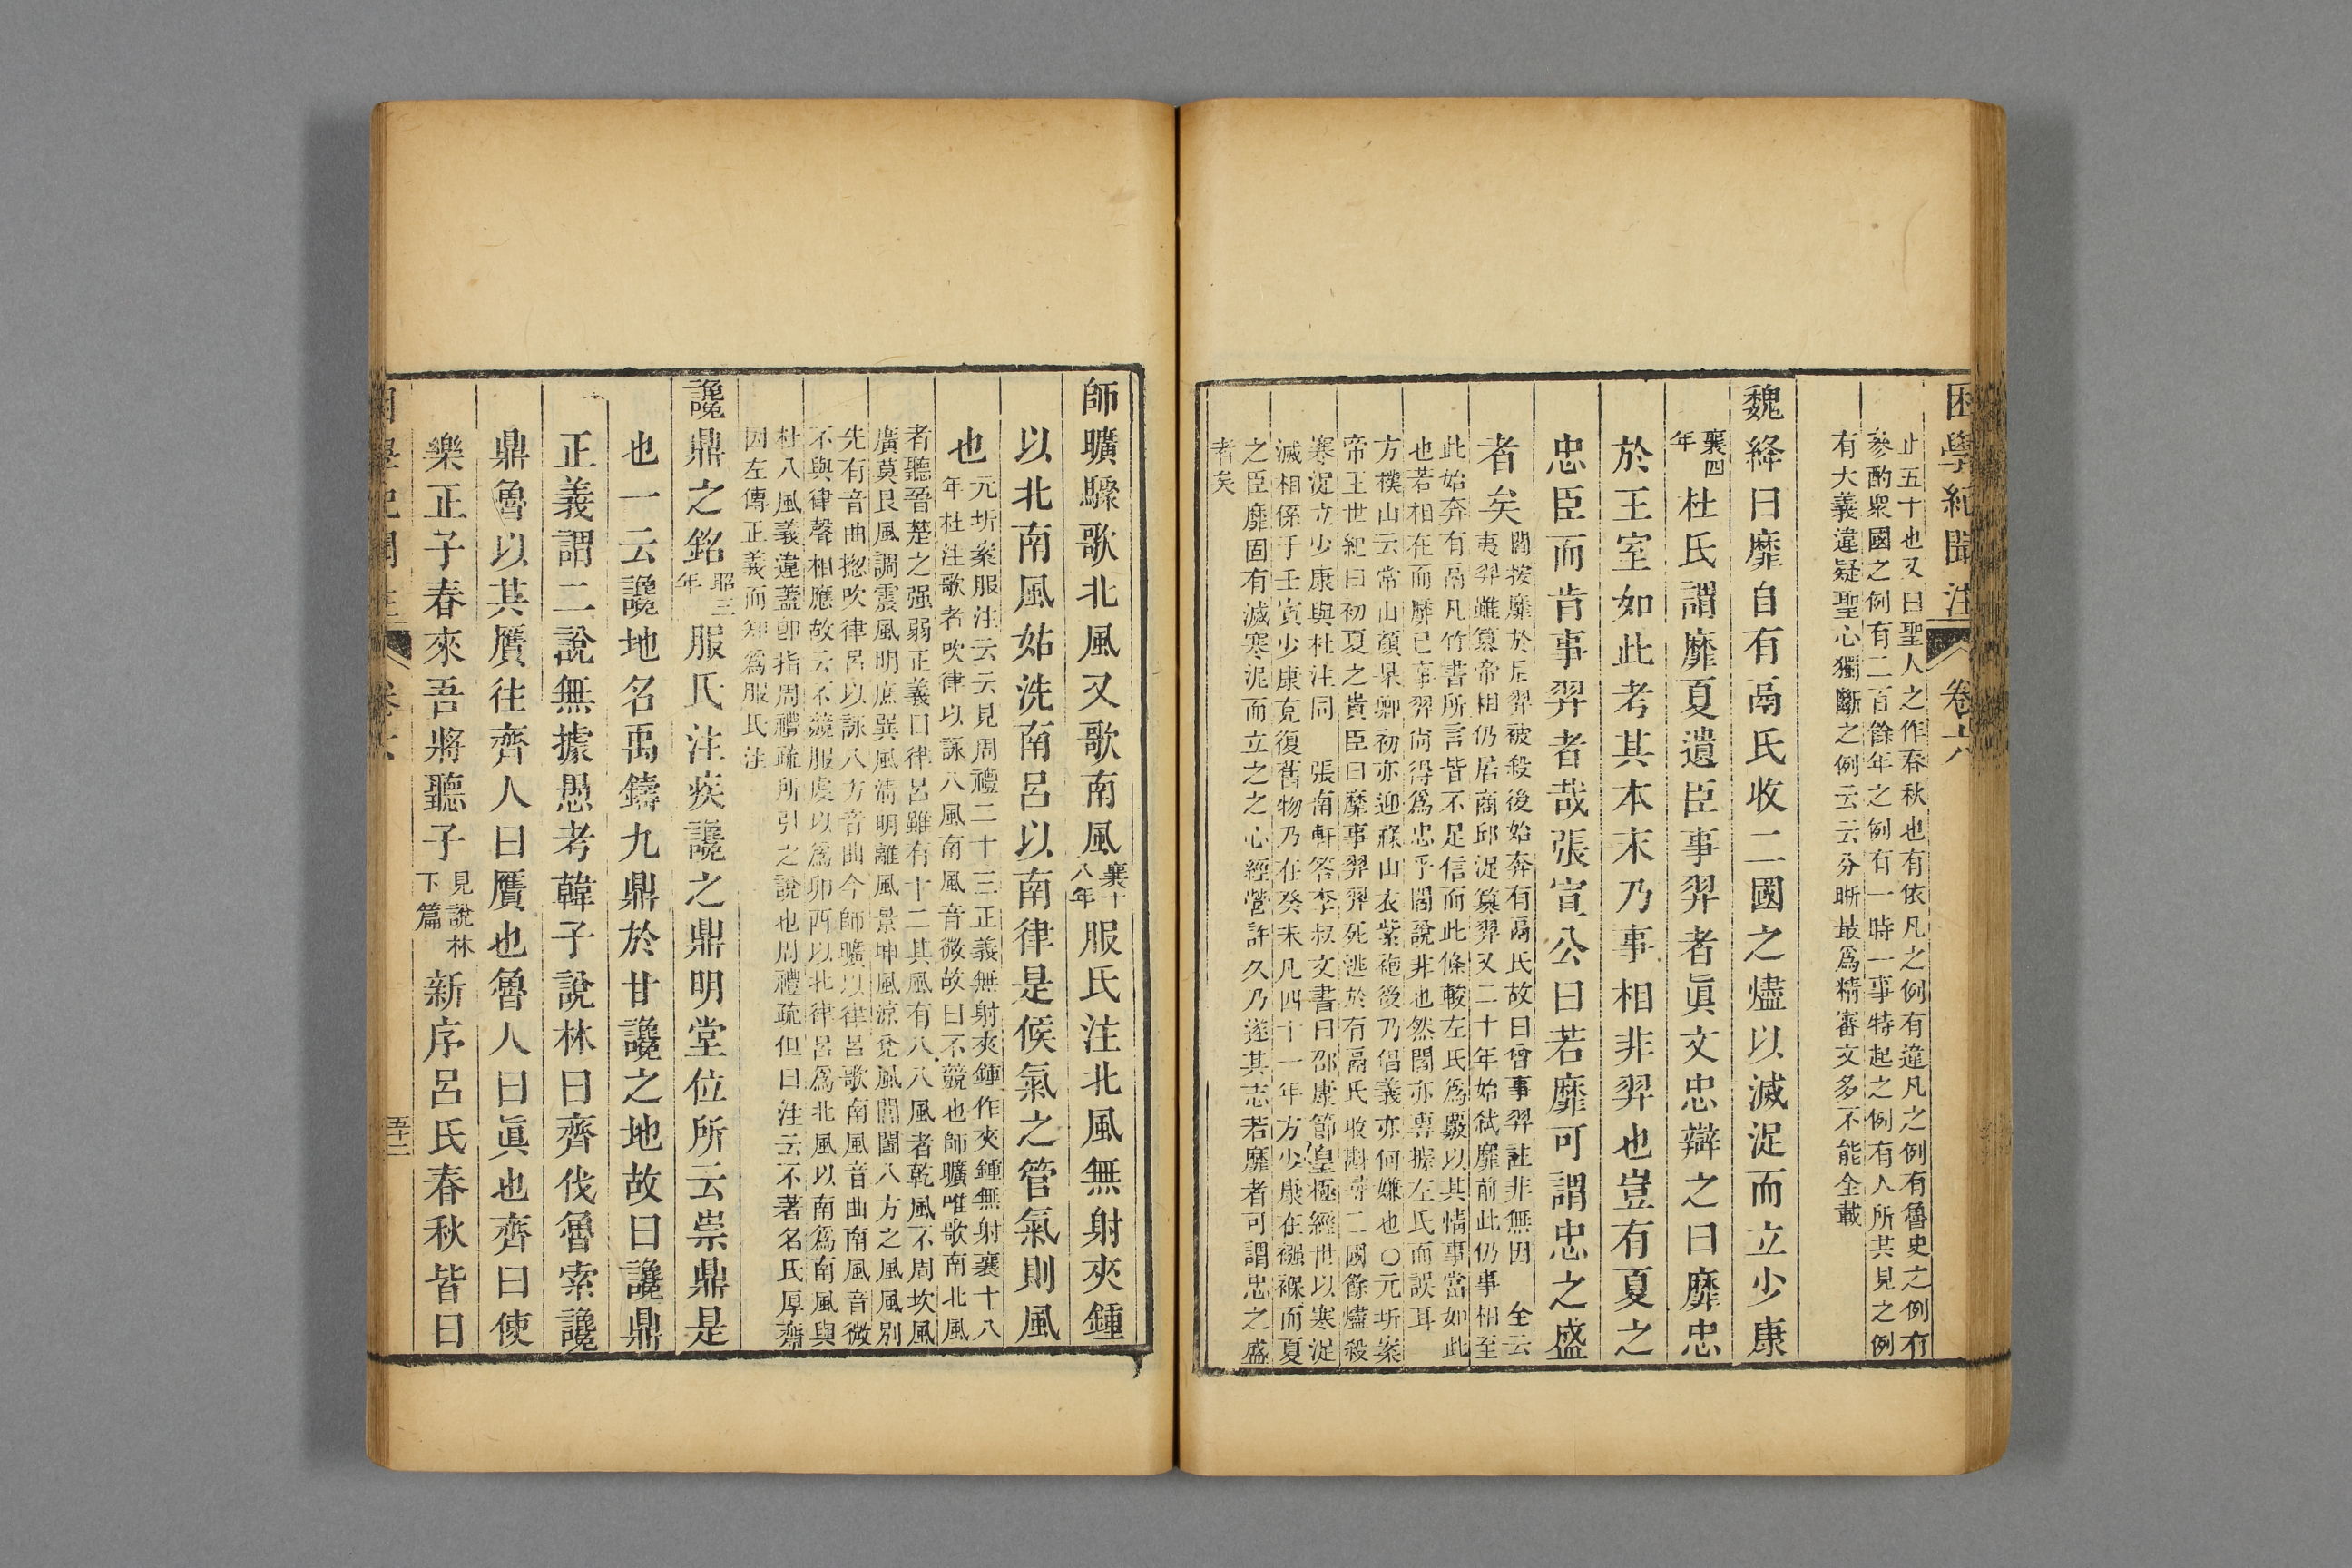 困學紀聞注 卷六
止五十也又曰聖人之作春秋也有依凡之例有違凡之例有魯史之例有
參酌衆國之例有二百餘年之例有一時一事特起之例有人所共見之例
有大義違疑聖心獨斷之例云云分晰最爲精審文多不能全載
魏絳曰靡自有鬲氏收二國之燼以滅浞而立少康
襄四年杜氏謂靡夏遺臣事羿者眞文忠辯之曰靡忠
於王室如此考其本末乃事相非羿也豈有夏之
忠臣而肯事羿者哉張宣公曰若靡可謂忠之盛
者矣
閻按靡於后羿被殺後始奔有鬲氏故曰曾事羿註非無因 全云
夷羿雖篡帝相仍居商邱浞簒羿又二十年始弑靡前此仍事相至
此始奔有鬲凡竹書所言皆不足信而此條較左氏爲覈以其情事當如此
也若相在而靡已事羿尙得爲忠乎閻說非也然閻亦專據左氏而誤耳
方樸山云常山顏杲卿初亦迎祿山衣紫袍後乃倡義亦何嫌也○元圻案
帝王世紀曰初夏之貴臣曰靡事羿羿死逃於有鬲氏收斟尋二國餘燼殺
寒浞立少康與杜注同 張南軒答李叔文書曰邵康節皇極經世以寒浞
滅相係于壬寅少康克復舊物乃在癸未凡四十一年方少康在襁褓而夏
之臣靡固有滅寒浞而立之之心經營許久乃遂其志若靡者可謂忠之盛
者矣
師曠驟歌北風又歌南風襄十八年服氏注北風無射夾鍾
以北南風姑洗南呂以南律是候氣之管氣則風
也
元圻案服注云云見周禮二十三正義無射夾鍾作夾鍾無射襄十八
年杜注歌者吹律以詠八風南風音微故曰不競也師曠唯歌南北風
者聽晉楚之强弱正義曰律呂雖有十二其風有八八風者乾風不周坎風
廣莫艮風調震風明庶巽風淸明離風景坤風涼兌風閶闔八方之風風別
先有音曲揔吹律呂以詠八方音曲今師曠以律呂歌南風音曲南風音微
不與律聲相應故云不競服虔以爲卯酉以北律呂爲北風以南爲南風與
杜八風義違蓋卽指周禮疏所引之說也周禮疏但曰注云不著名氏厚齋
因左傳正義而知爲服氏注
讒鼎之銘昭三年服氏注疾讒之鼎明堂位所云崇鼎是
也一云讒地名禹鑄九鼎於甘讒之地故曰讒鼎
正義謂二說無據愚考韓子說林曰齊伐魯索讒
鼎魯以其贋往齊人曰贋也魯人曰眞也齊曰使
樂正子春來吾將聽子見說林下篇新序呂氏春秋皆曰
卷六